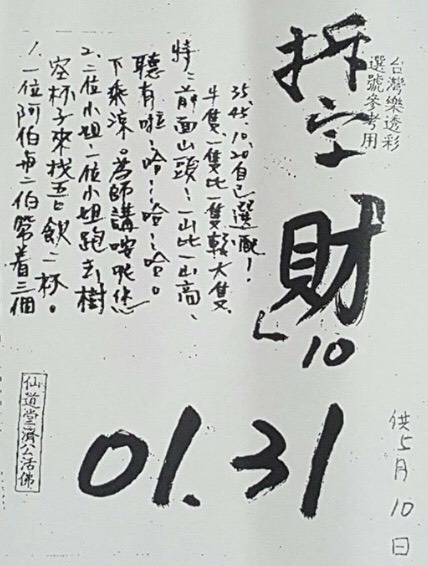 台灣樂透彩
選號參考用
拆字
財
10
01.31
供5月10日
1.一位阿伯再二伯帶着三個
空杯子來找吾飲二杯。
2.二位小姐一位小姐跑去樹
下乘涼。為師講哎呢您
聽有啦!哈!哈!哈。
特:前面山頭一山比一山高、
牛隻一隻比一隻較大隻
35.45.10.20自已選配!
仙道堂濟公活佛